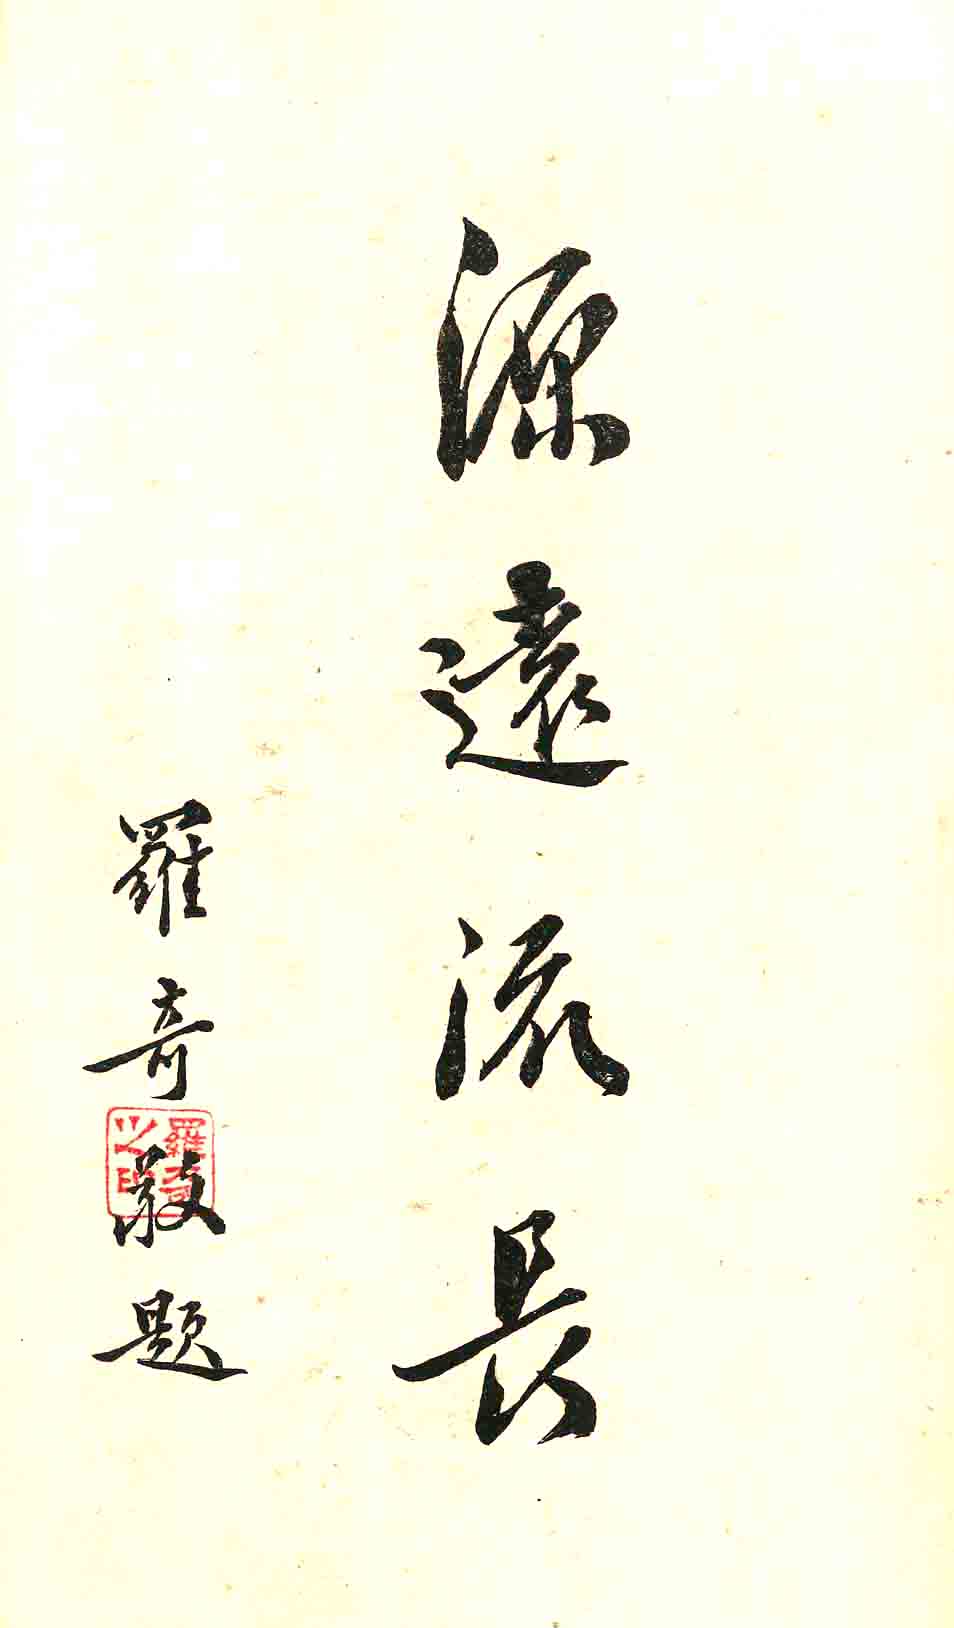 源遠流長
羅奇敬題
羅奇之印